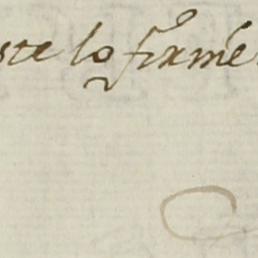 ste lo firme